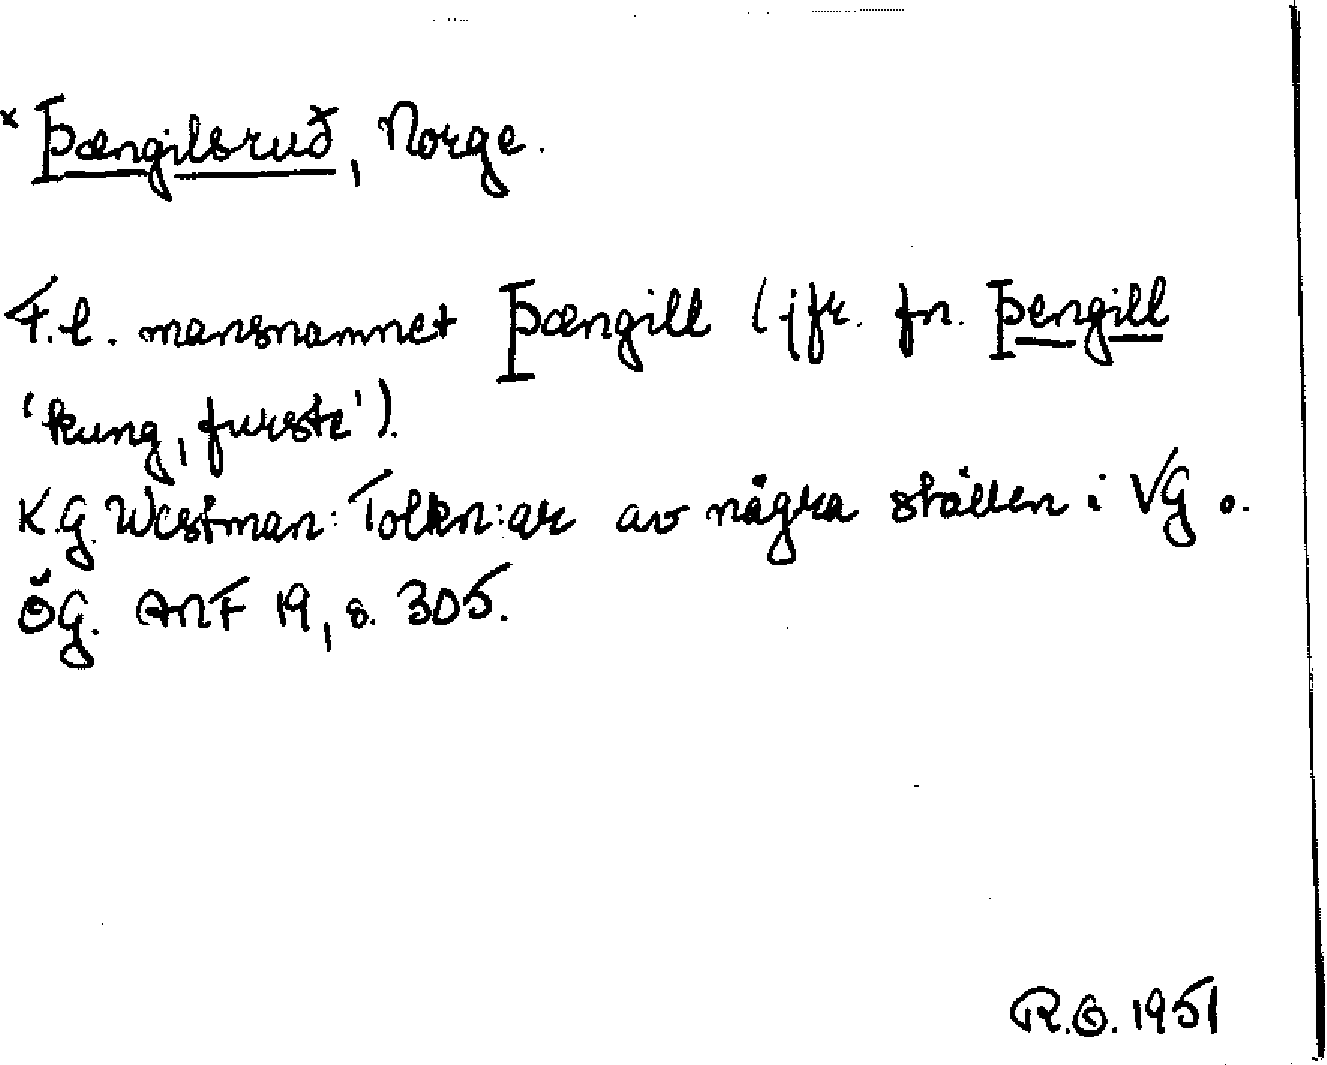 × Þængilsruð, Norge.
F.l. mansnamnet Þængill (jfr. fn. Þengill
'kung, furste').
K.G. Westman: Tolkn:ar av några ställen i VG o.
ÖG. ANF 19, s. 305.
R.O. 1951